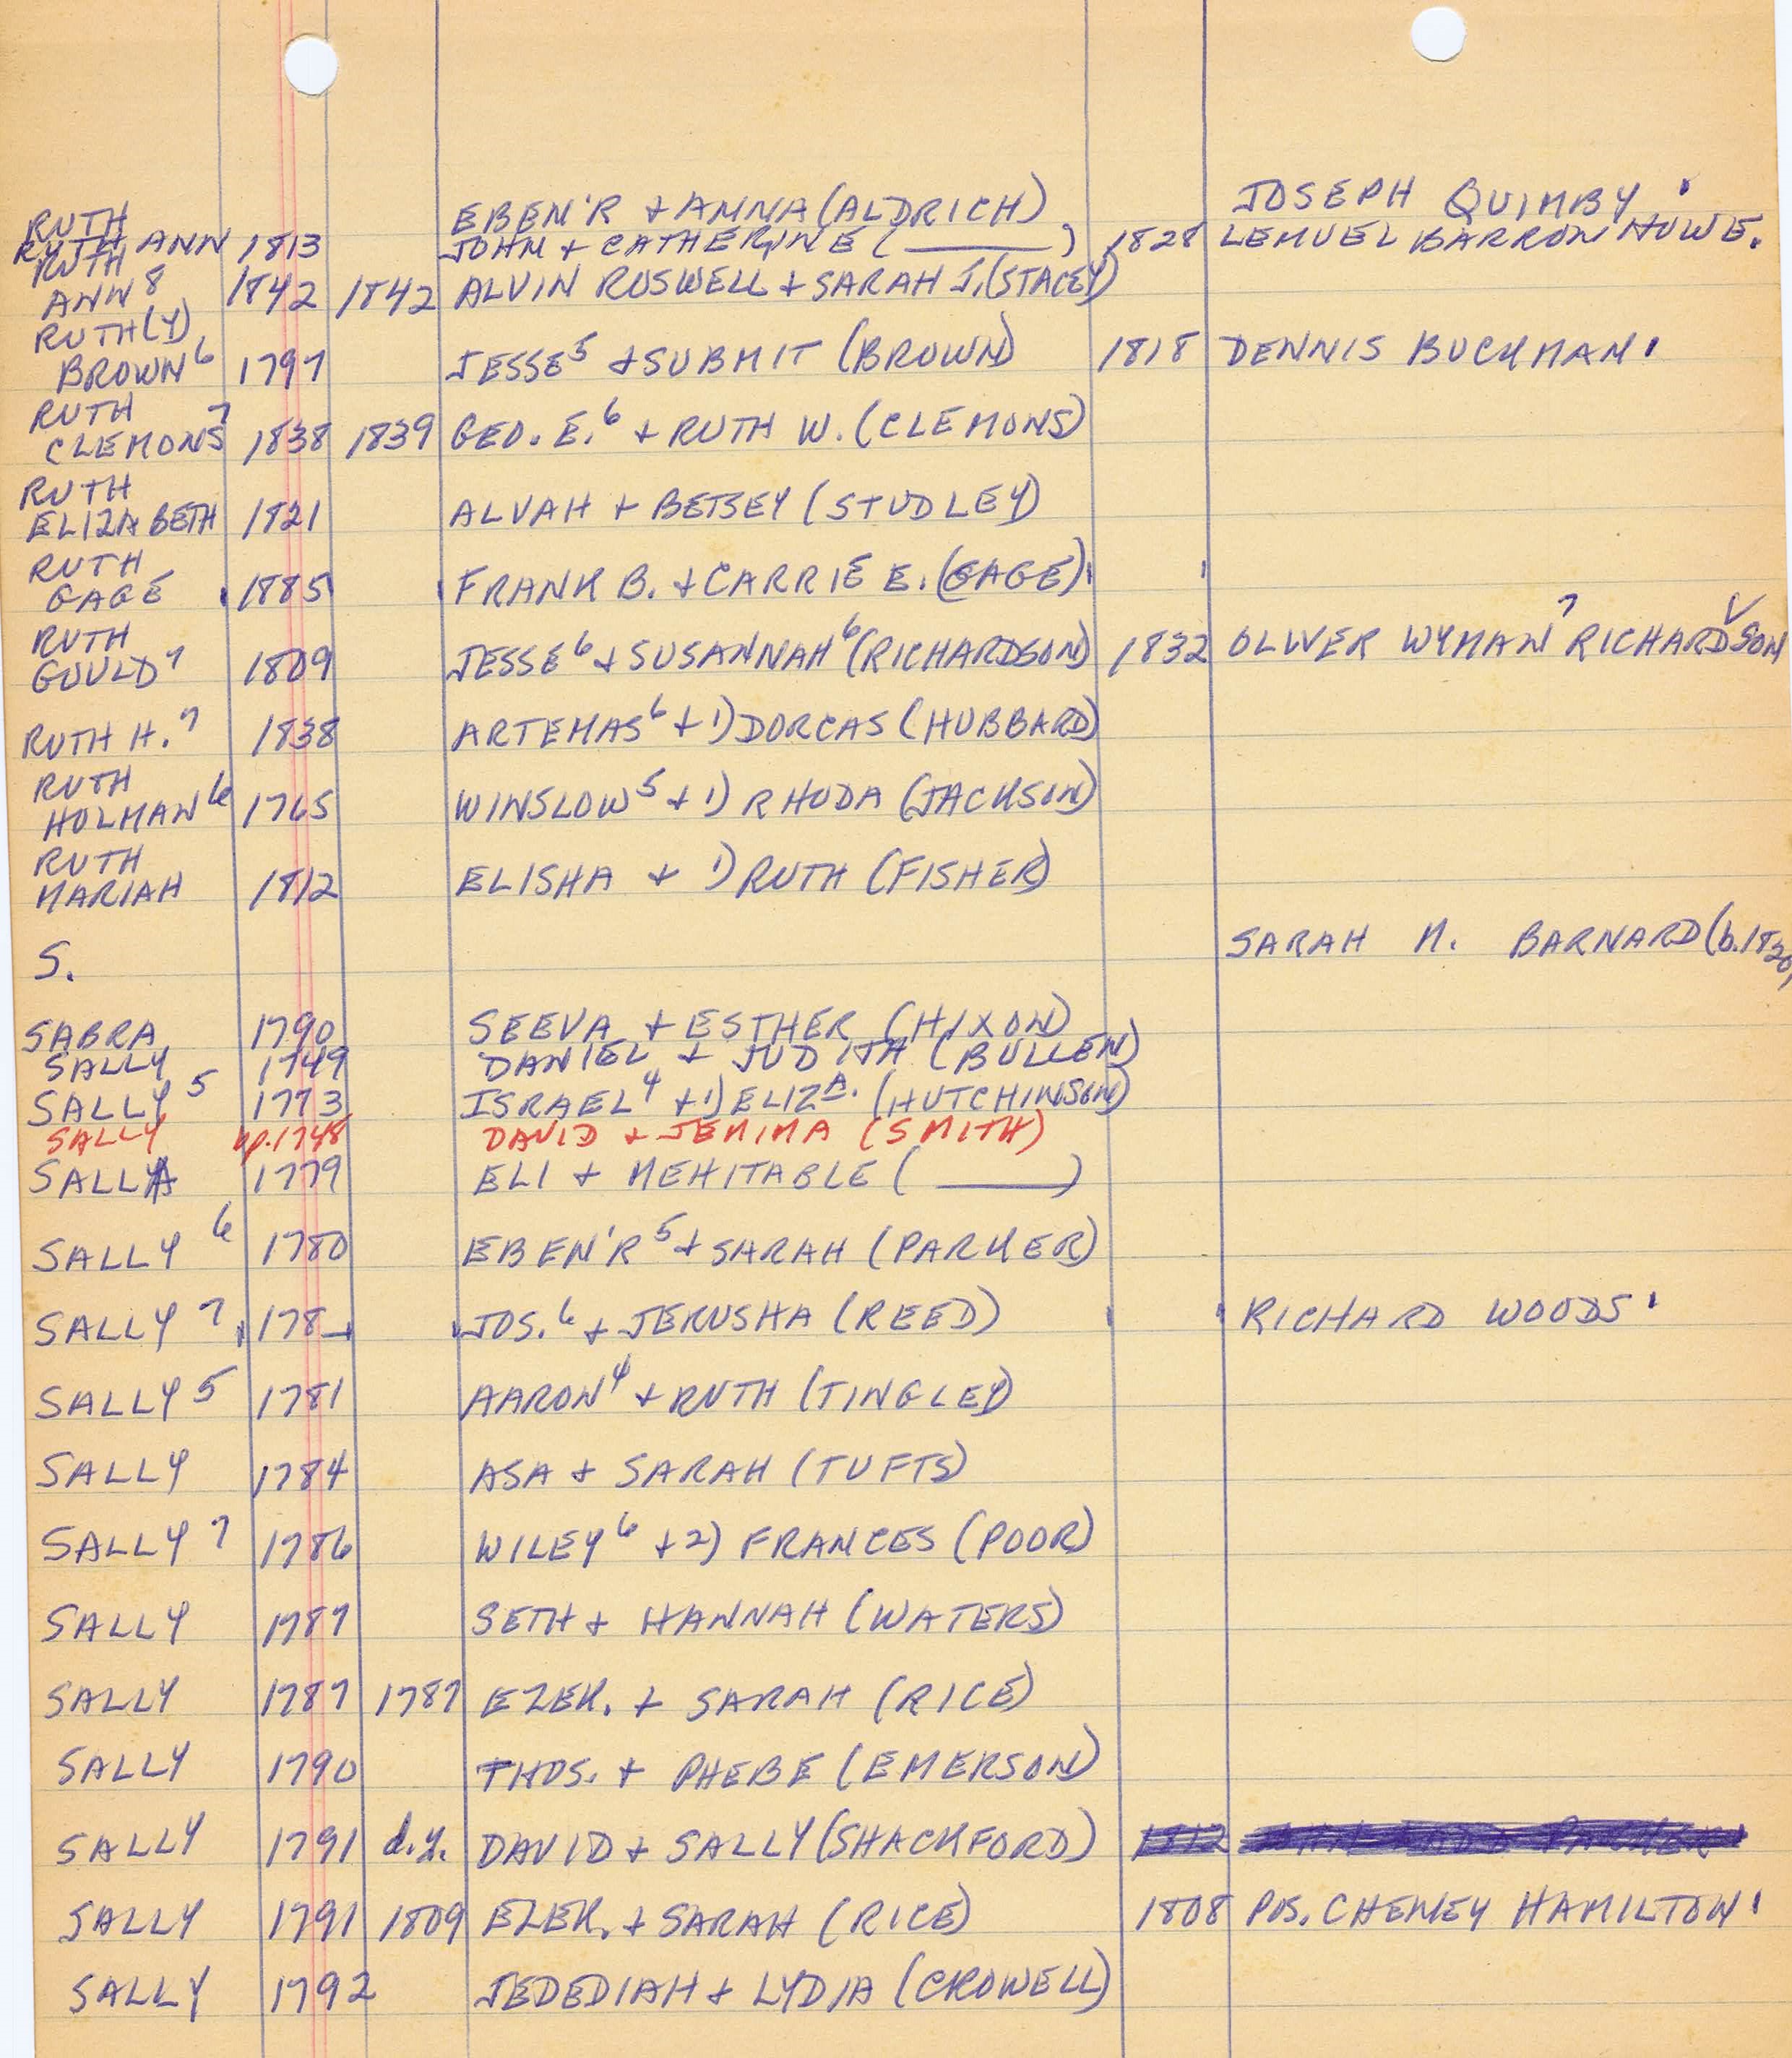 RUTH EBEN'R + ANNA (ALDRICH) JOSEPH QUIMBY.
RUTH ANN 1813 JOHN + CATHERINE ( ______ ) 1828 LEMUEL BARRON HOWE.
RUTH
ANN 8 1842 1842 ALVIN ROSWELL + SARAH J. (STACEY)
RUTH(Y)
BROWN 6 1797 JESSE 5 + SUBMIT (BROWN) 1818 DENNIS BUCKMAN.
RUTH
CLEMONS 7 1838 1839 GEO. E. 6 + RUTH W. (CLEMONS)
RUTH
ELIZABETH 1821 ALVAH + BETSEY (STUDLEY)
RUTH
GAGE 1885 FRANK B. + CARRIE E. (GAGE)
RUTH
GOULD 7 1809 JESSE 6 + SUSANNAH 6 (RICHARDSON) 1832 OLIVER WYMAN 7 RICHARDSON ✓
RUTH H. 7 1838 ARTEMAS 6 + 1) DORCAS (HUBBARD)
RUTH
HOLMAN 6 1765 WINSLOW 5 + 1) RHODA (JACKSON)
RUTH
MARIAH 1812 ELISHA + 1) RUTH (FISHER)
S. SARAH M. BARNARD (b. 1820)
SABRA 1790 SEEVA + ESTHER (HIXON)
SALLY 1749 DANIEL + JUDITH (BULLEN)
SALLY 5 1773 ISRAEL 4 + 1) ELIZA. (HUTCHINSON)
SALLY bp. 1748 DAVID + JEMIMA (SMITH)
SALLY 1779 ELI + MEHITABLE ( ______ )
SALLY 6 1780 EBEN'R 5 + SARAH (PARKER)
SALLY 7 178_ JOS. 6 + JERUSHA (REED) RICHARD WOODS.
SALLY 5 1781 AARON 4 + RUTH (TINGLEY)
SALLY 1784 ASA + SARAH (TUFTS)
SALLY 7 1786 WILEY 6 + 2) FRANCES (POOR)
SALLY 1787 SETH + HANNAH (WATERS)
SALLY 1787 1787 EZEK. + SARAH (RICE)
SALLY 1790 THOS. + PHEBE (EMERSON)
SALLY 1791 d.y. DAVID + SALLY (SHACKFORD) 1812
SALLY 1791 1809 EZEK. + SARAH (RICE) 1808 POS. CHENEY HAMILTON.
SALLY 1792 JEDEDIAH + LYDIA (CROWELL)